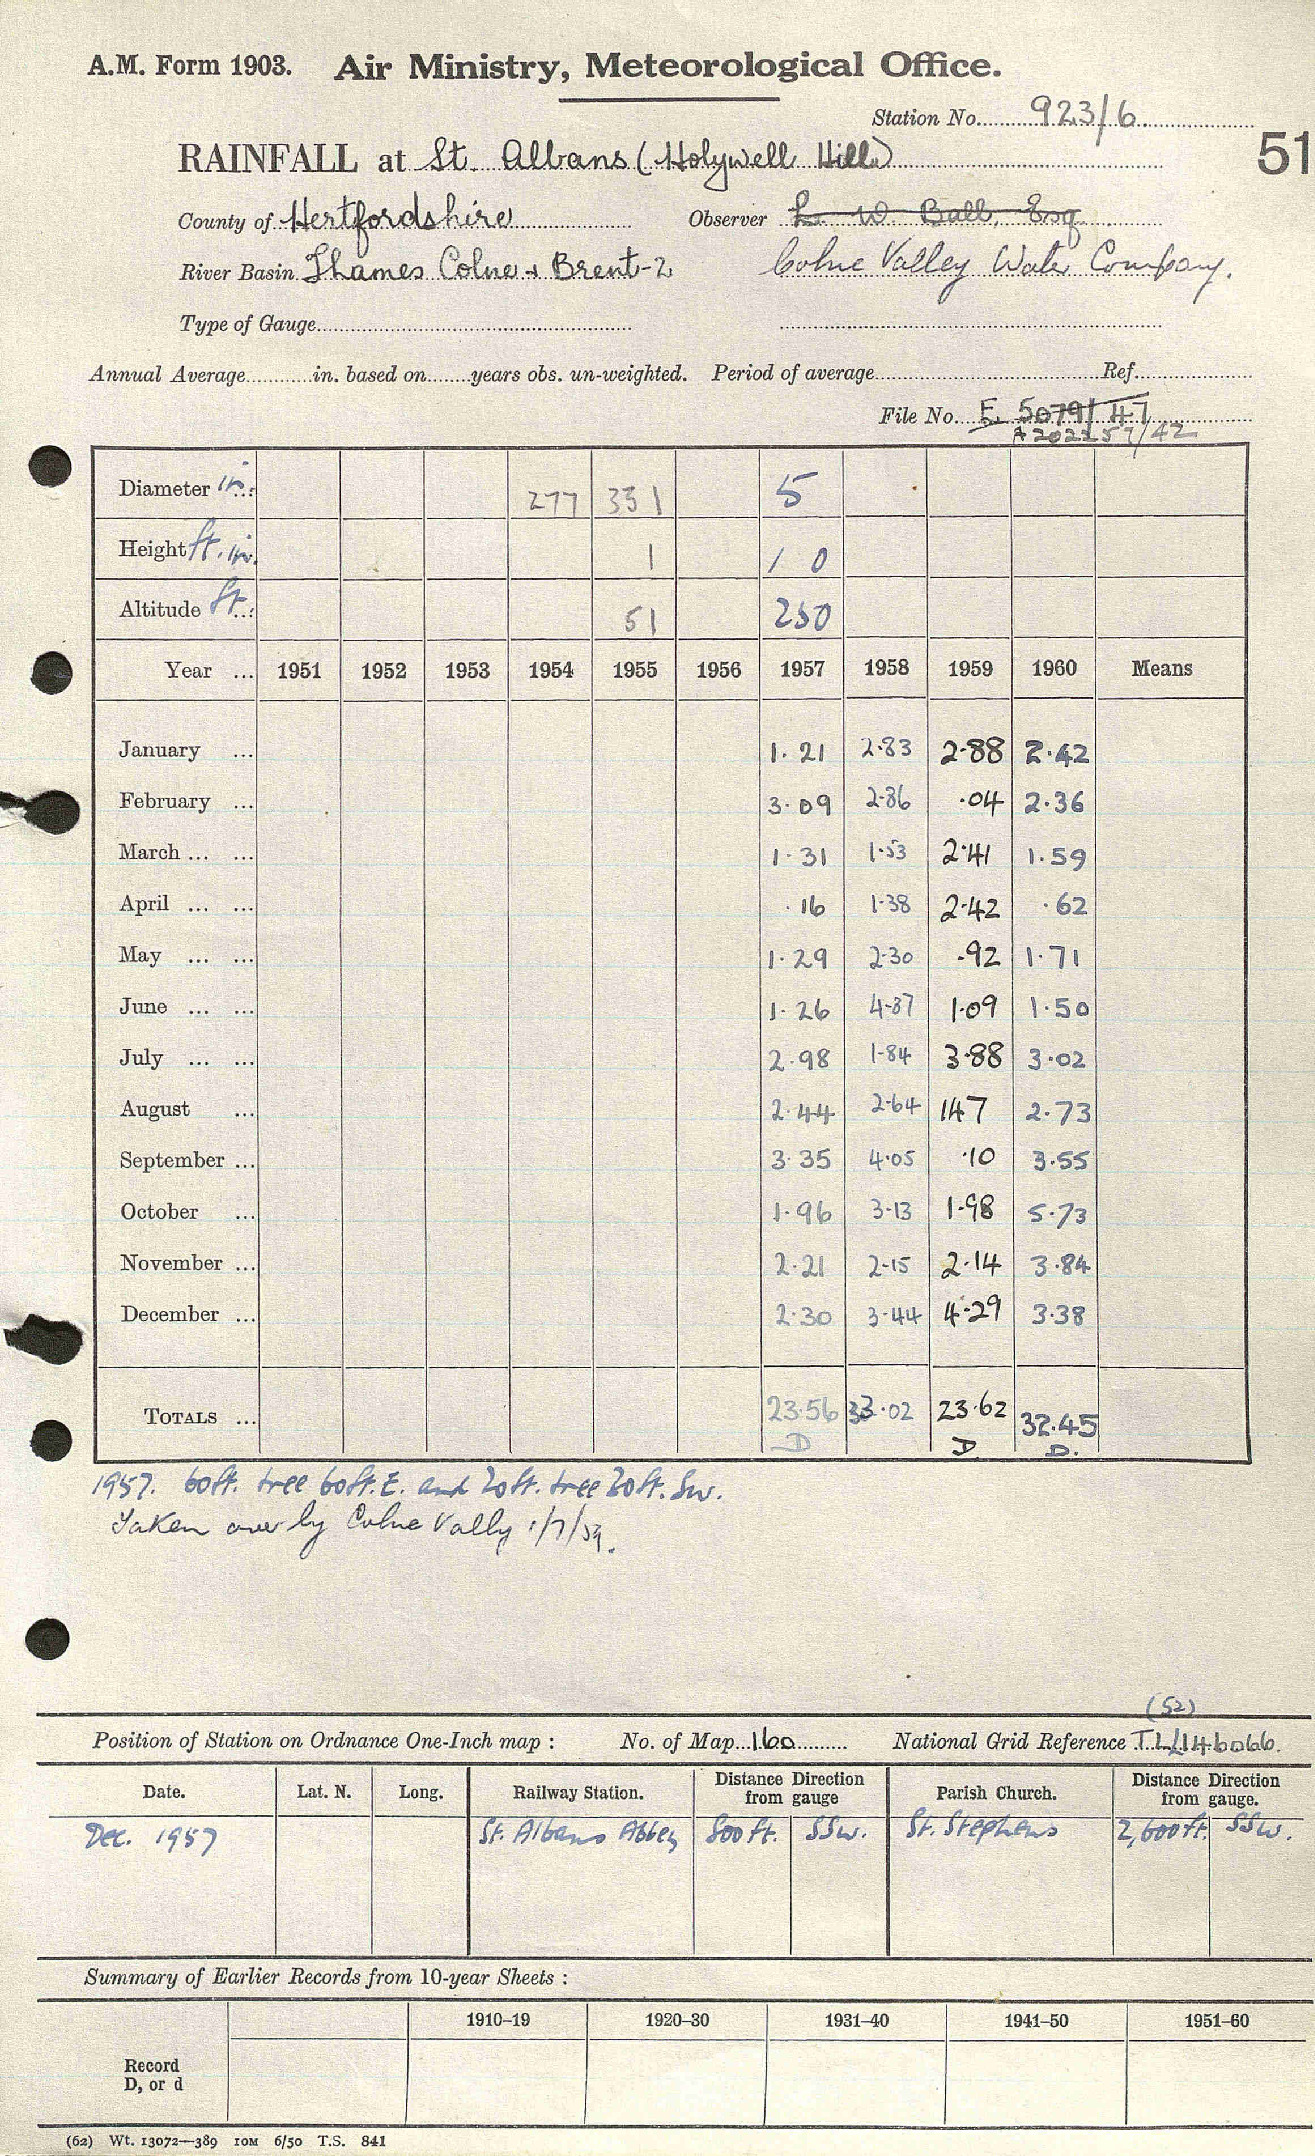 A.M. Form 1903. Air Ministry, Meteorological Office.
Station No. 923/6
51
RAINFALL at St. Albans (Holywell Hill)
County of Hertfordshire Observer L. W. Ball, Esq
River Basin Thames Colne & Brent-2 Colne Valley Water Company.
Type of Gauge
Annual Average in. based on years obs. un-weighted. Period of average Ref.
File No. E 5079/47
A 202257/42
Diameter in. 277 331 5
Height ft. in. 1 1 0
Altitude ft. 51 250
Year ... 1951 1952 1953 1954 1955 1956 1957 1958 1959 1960 Means
January ... 1.21 2.83 2.88 2.42
February ... 3.09 2.86 .04 2.36
March ... ... 1.31 1.53 2.41 1.59
April ... ... .16 1.38 2.42 .62
May ... ... 1.29 2.30 .92 1.71
June ... ... 1.26 4.87 1.09 1.50
July ... ... 2.98 1.84 3.88 3.02
August ... 2.44 2.64 147 2.73
September ... 3.35 4.05 .10 3.55
October ... 1.96 3.13 1.98 5.73
November ... 2.21 2.15 2.14 3.84
December ... 2.30 3.44 4.29 3.38
TOTALS ... 23.56 33.02 23.62 32.45
D D D.
1957. 60ft. tree 60ft. E. and 20ft. tree 20ft. SW.
Taken over by Colne Vally 1/7/59.
(52)
Position of Station on Ordnance One-Inch map : No. of Map 160 National Grid Reference TL/146066.
Date. Lat. N. Long. Railway Station. Distance from gauge Direction Parish Church. Distance from gauge. Direction
Dec. 1957 St. Albans Abbey 800ft. SSW. St. Stephens 2,600ft. SSW.
Summary of Earlier Records from 10-year Sheets :
1910–19 1920–30 1931–40 1941–50 1951–60
Record
D, or d
(62) Wt. 13072—389 10M 6/50 T.S. 841